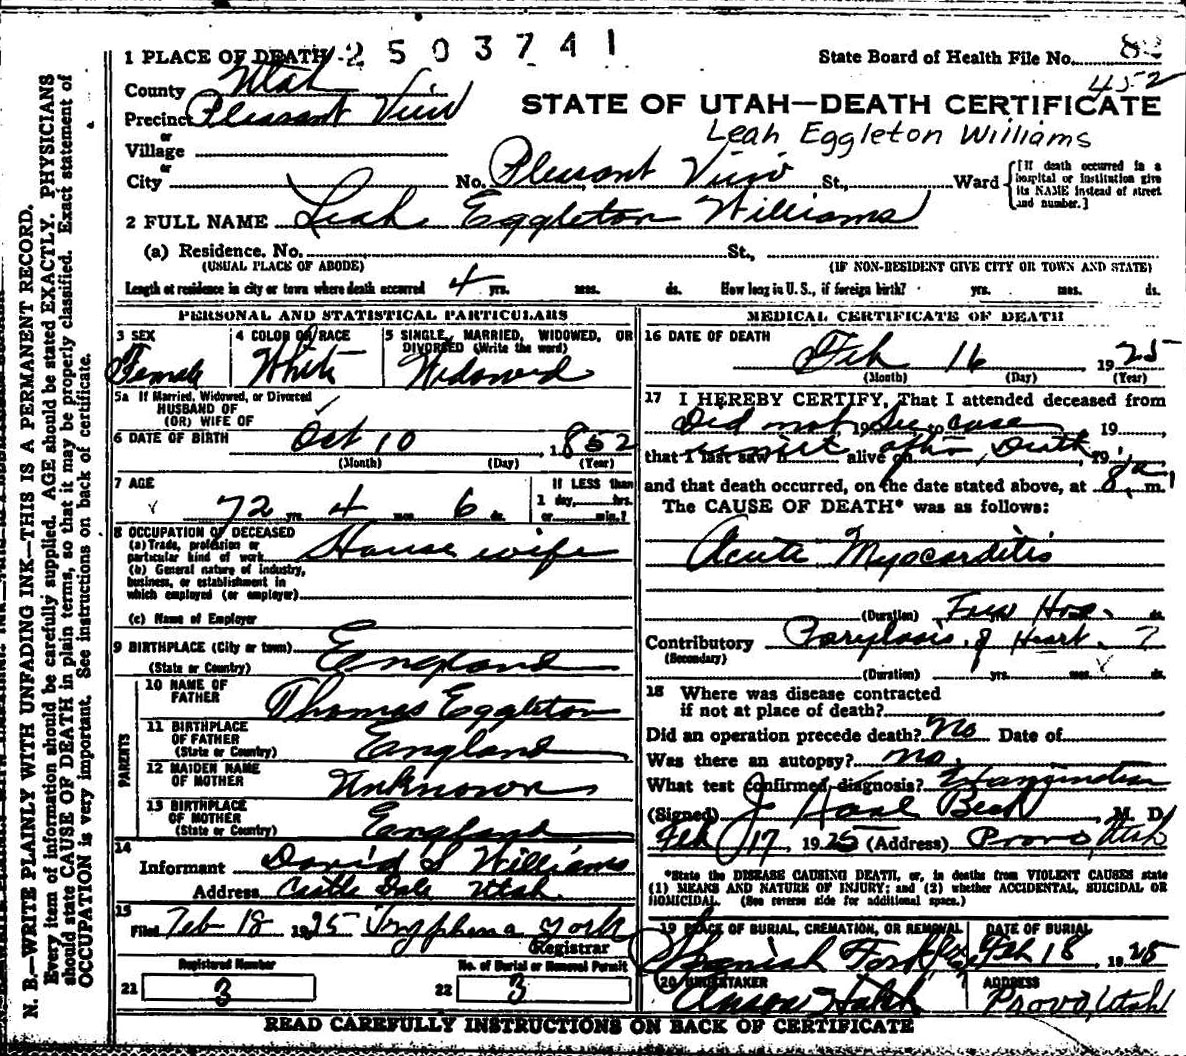 2503741
1 PLACE OF DEATH
State Board of Health File No. 82
452
County Utah
Precinct Pleasant View
STATE OF UTAH—DEATH CERTIFICATE
Leah Eggleton Williams
or
Village
or
City No. Pleasant View St., Ward [If death occurred in a hospital or institution give its NAME instead of street and number.]
2 FULL NAME Leah Eggleton Williams
(a) Residence. No. St.,
(USUAL PLACE OF ABODE) (IF NON-RESIDENT GIVE CITY OR TOWN AND STATE)
Length of residence in city or town where death occurred 4 yrs. mos. ds. How long in U. S., if foreign birth? yrs. mos. ds.
PERSONAL AND STATISTICAL PARTICULARS
3 SEX
Female
4 COLOR OR RACE
White
5 SINGLE, MARRIED, WIDOWED, OR
DIVORCED (Write the word)
Widowed
5a If Married, Widowed, or Divorced
HUSBAND OF
(OR) WIFE OF
6 DATE OF BIRTH Oct 10, 1852
(Month) (Day) (Year)
7 AGE
72 yrs. 4 mos. 6 ds.
If LESS than
1 day, hrs.
or min.?
8 OCCUPATION OF DECEASED
(a) Trade, profession or
particular kind of work House wife
(b) General nature of industry,
business, or establishment in
which employed (or employer)
(c) Name of Employer
9 BIRTHPLACE (City or town)
(State or Country) England
PARENTS
10 NAME OF
FATHER Thomas Eggleton
11 BIRTHPLACE
OF FATHER
(State or Country) England
12 MAIDEN NAME
OF MOTHER Unknown
13 BIRTHPLACE
OF MOTHER
(State or Country) England
14
Informant David S Williams
Address Castle Dale Utah.
15
Filed Feb 18 1925 Tryphena York
Registrar
Registered Number
21 3
No. of Burial or Removal Permit
22 3
MEDICAL CERTIFICATE OF DEATH
16 DATE OF DEATH
Feb 16 1925
(Month) (Day) (Year)
17 I HEREBY CERTIFY, That I attended deceased from
Did not 19 See to case 19
that I last saw h alive on after Death, 19
and that death occurred, on the date stated above, at 8 a m.
The CAUSE OF DEATH* was as follows:
Acute Myocarditis
(Duration) Few Hos. ds.
Contributory Parylasis of Heart. ?
(Secondary)
(Duration) yrs. mos. ds.
18 Where was disease contracted
if not at place of death?
Did an operation precede death? No Date of
Was there an autopsy? no.
What test confirmed diagnosis?
(Signed) J Beck M. D.
Feb 17, 1925 (Address) Provo, Utah
*State the DISEASE CAUSING DEATH, or, in deaths from VIOLENT CAUSES state
(1) MEANS AND NATURE OF INJURY; and (2) whether ACCIDENTAL, SUICIDAL OR
HOMICIDAL. (See reverse side for additional space.)
19 PLACE OF BURIAL, CREMATION, OR REMOVAL
Spanish Fork
DATE OF BURIAL
Feb 18, 1925
20 UNDERTAKER
Anson Hatch
ADDRESS
Provo, Utah
READ CAREFULLY INSTRUCTIONS ON BACK OF CERTIFICATE
N. B.—WRITE PLAINLY WITH UNFADING INK—THIS IS A PERMANENT RECORD.
Every item of information should be carefully supplied. AGE should be stated EXACTLY. PHYSICIANS
should state CAUSE OF DEATH in plain terms, so that it may be properly classified. Exact statement of
OCCUPATION is very important. See instructions on back of certificate.